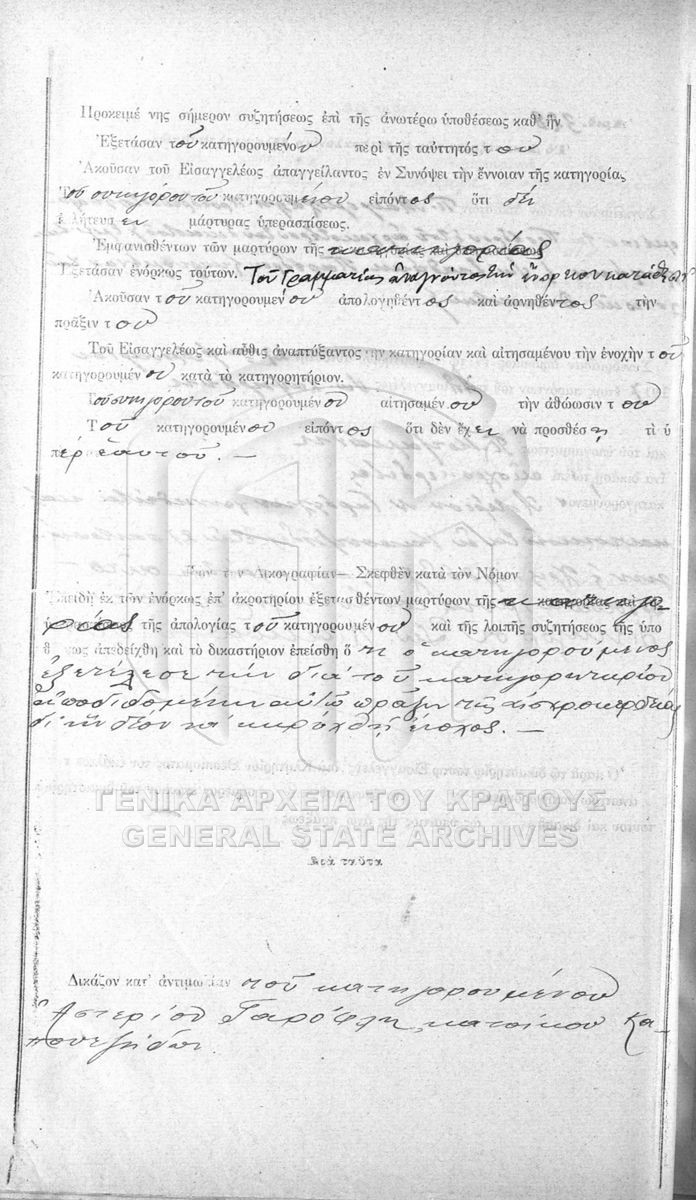 Προκειμέ νης σήμερον συζητήσεως ἐπὶ τῆς ἀνωτέρω ὑποθέσεως καθ' ἣν
Ἐξετάσαν τοῦ κατηγορουμένου περὶ τῆς ταὐτητός του
Ἀκοῦσαν τοῦ Εἰσαγγελέως ἀπαγγείλαντος ἐν Συνόψει τὴν ἔννοιαν τῆς κατηγορίας
Τοῦ συνηγόρου τοῦ κατηγορουμένου εἰπόντος ὅτι δὲ
κλήτευσεν μάρτυρας ὑπερασπίσεως.
Ἐμφανισθέντων τῶν μαρτύρων τῆς κατηγορίας
Ἐξετάσαν ἐνόρκως τούτων. Τοῦ Γραμματέως ἀναγνόντος τὴν ἔνορκον κατάθεσιν
Ἀκοῦσαν τοῦ κατηγορουμένου ἀπολογηθέντος καὶ ἀρνηθέντος τὴν
πρᾶξιν του
Τοῦ Εἰσαγγελέως καὶ αὖθις ἀναπτύξαντος την κατηγορίαν καὶ αἰτησαμένου τὴν ἐνοχὴν του
κατηγορουμένου κατὰ τὸ κατηγορητήριον.
Τοῦ συνηγόρου τοῦ κατηγορουμένου αἰτησαμένου τὴν ἀθώωσιν του
Τοῦ κατηγορουμένου εἰπόντος ὅτι δὲν ἔχει νὰ προσθέσῃ τὶ ὑ
πὲρ ἑαυτοῦ. —
Ἰδὸν τὴν Δικογραφίαν — Σκεφθὲν κατὰ τὸν Νόμον
Ἐπειδὴ ἐκ τῶν ἐνόρκως ἐπ' ἀκροτηρίου ἐξετασθέντων μαρτύρων τῆς κατηγο
ρίας τῆς ἀπολογίας τοῦ κατηγορουμένου καὶ τῆς λοιπῆς συζητήσεως τῆς ὑπο
θ ως ἀπεδείχθη καὶ τὸ δικαστήριον ἐπείσθη ὅτι ὁ κατηγορούμενος
ἐξετέλεσε τὴν διὰ τοῦ κατηγορητηρίου
ἀποδιδομένην αὐτῷ πρᾶξιν τῆς αἰσχροκερδείας
δι' ἣν δέον νὰ κηρυχθῇ ἔνοχος. —
ΓΕΝΙΚΑ ΑΡΧΕΙΑ ΤΟΥ ΚΡΑΤΟΥΣ
GENERAL STATE ARCHIVES
Διὰ ταῦτα
Δικάζον κατ' ἀντιμωλίαν τοῦ κατηγορουμένου
Ἀστερίου Γαρόφλη κατοίκου Κα-